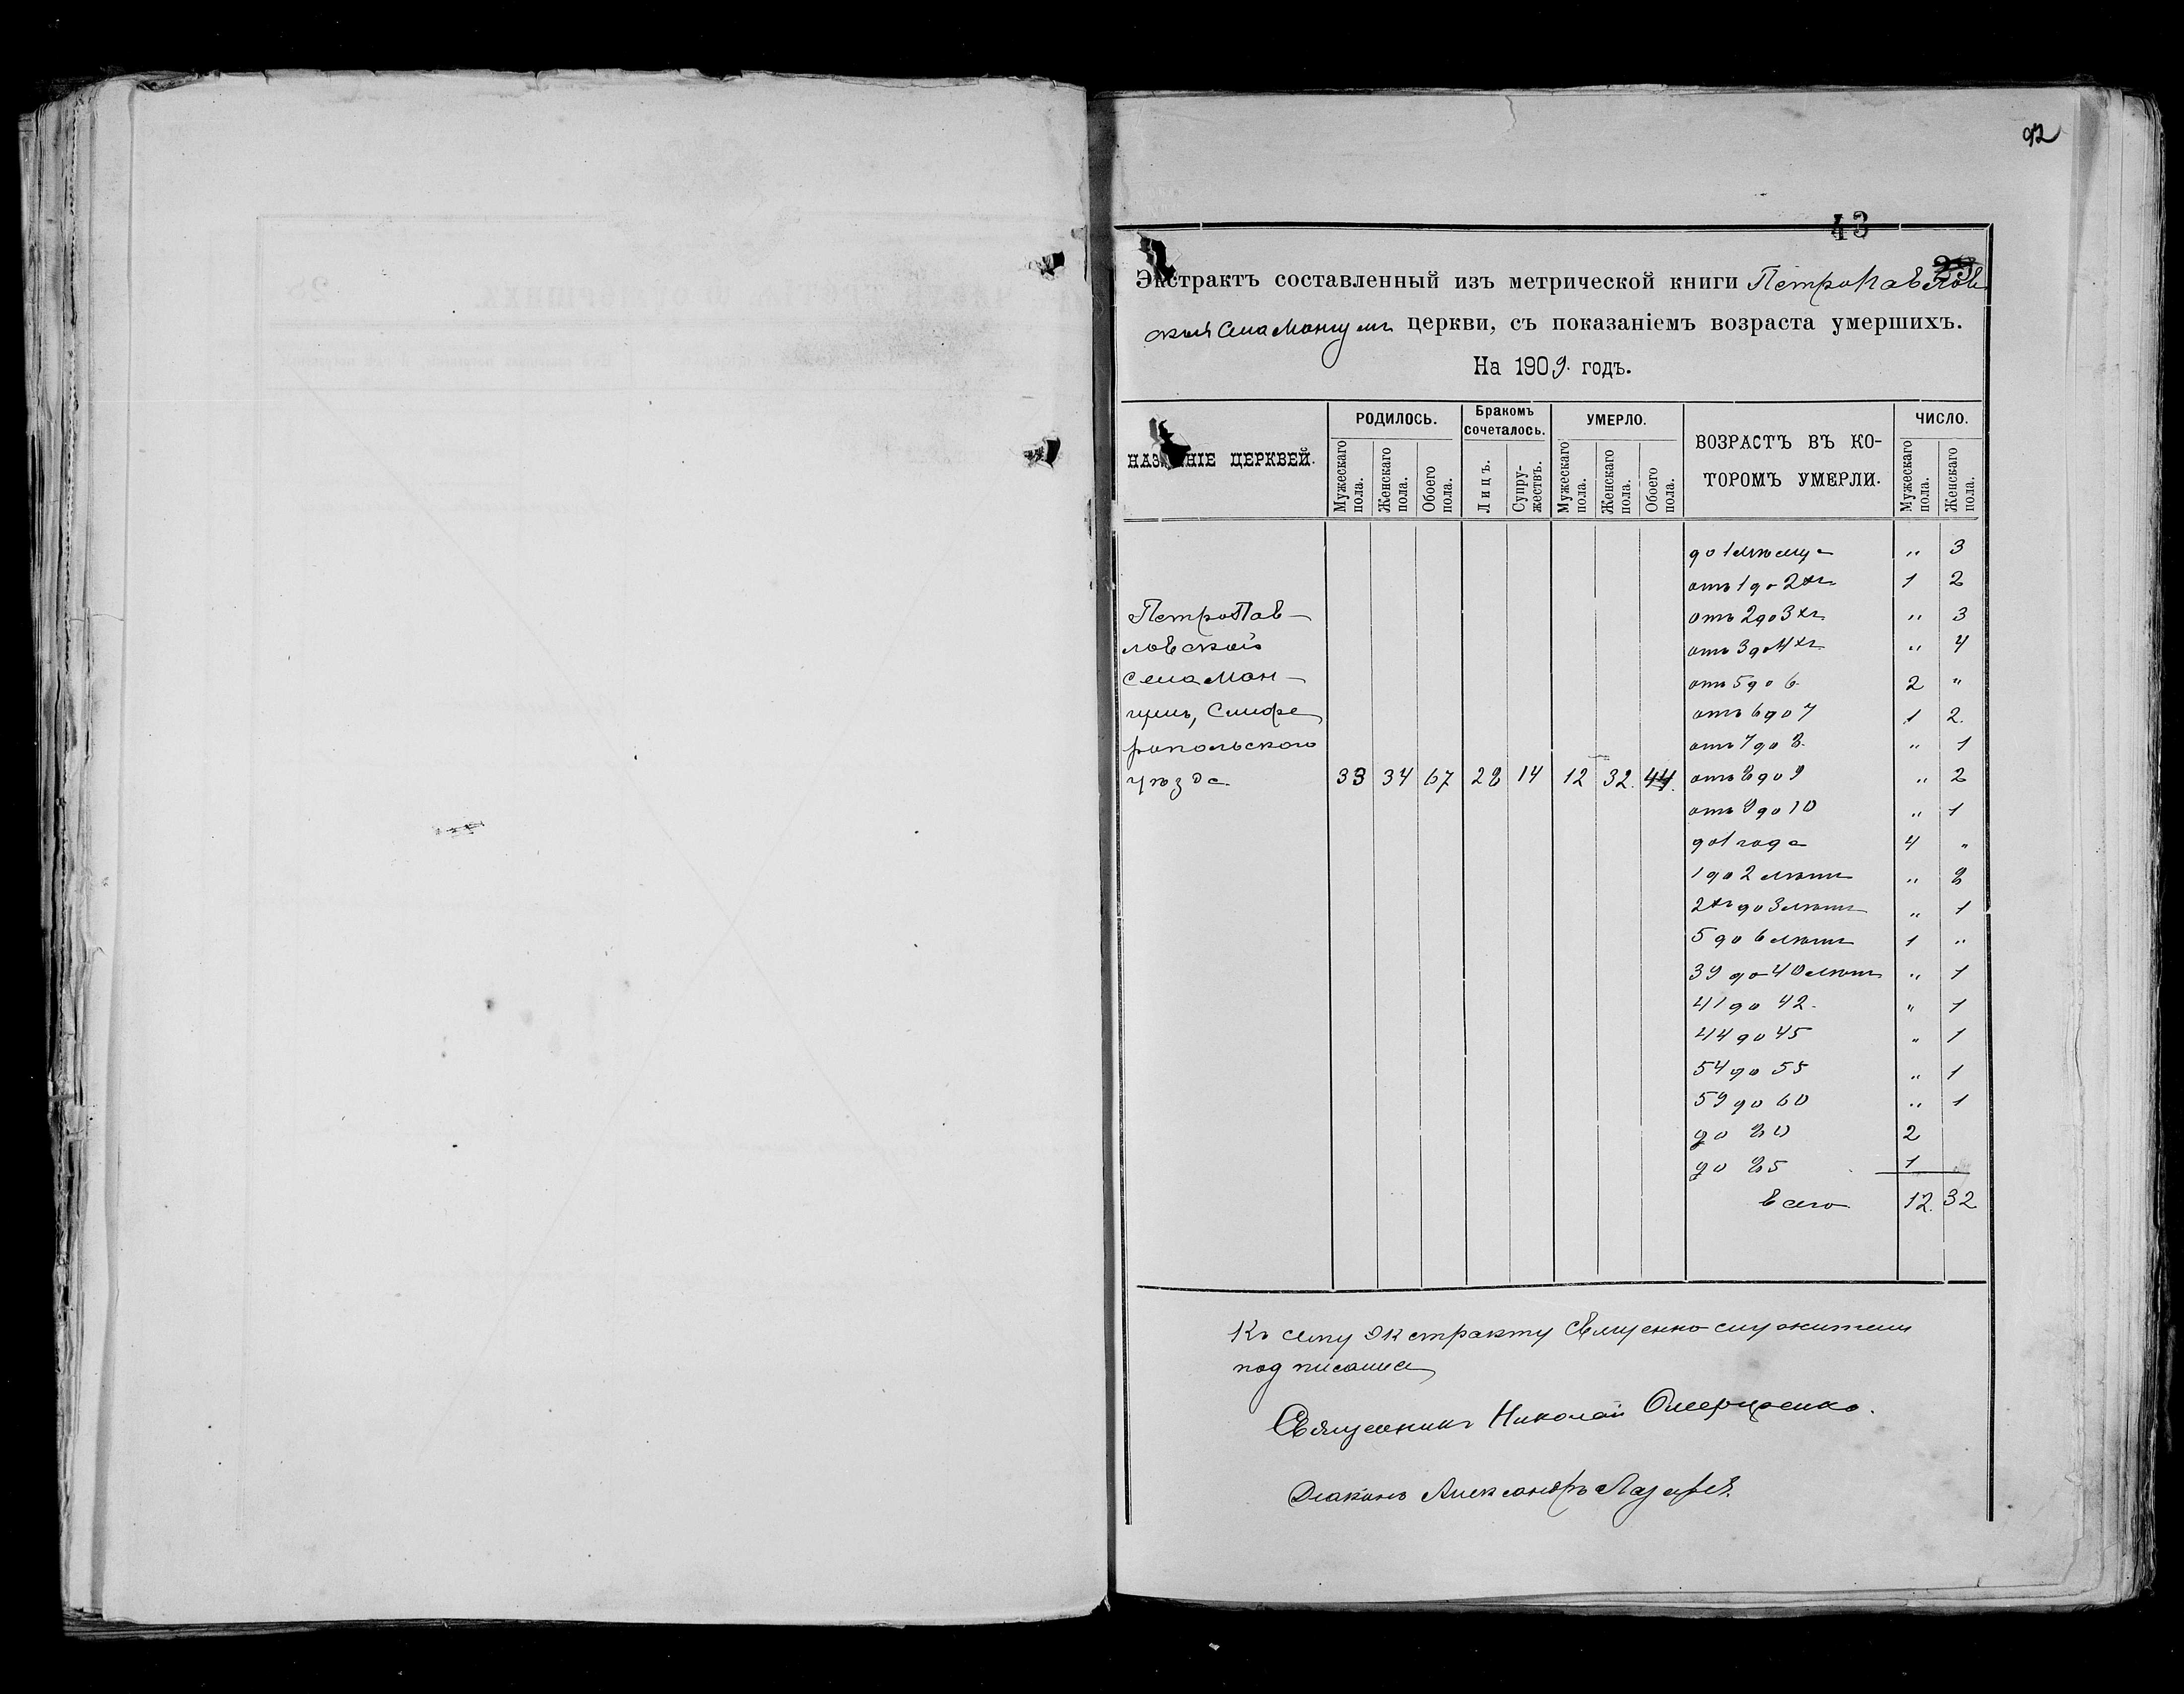 92
43
25
Экстрактъ составленный изъ метрической книги ПетроПавлов
ской Села Мангушъ церкви, съ показаніемъ возраста умершихъ.
На 1909. годъ.
НАЗВАНІЕ ЦЕРКВЕЙ.
РОДИЛОСЬ.
Мужескаго пола.
Женскаго пола.
Обоего пола.
Бракомъ сочеталось.
Лицъ.
Супружествъ.
УМЕРЛО.
Мужескаго пола.
Женскаго пола.
Обоего пола.
ВОЗРАСТЪ ВЪ КО-
ТОРОМЪ УМЕРЛИ.
ЧИСЛО.
Мужескаго пола.
Женскаго пола.
до 1 мѣсяца „ 3
отъ 1 до 2хъ 1 2
ПетроПав- отъ 2 до 3хъ „ 3
ловской отъ 3 до 4хъ „ 4
Села Ман- отъ 5 до 6. 2 „
гушъ, Симфе отъ 6 до 7 1 2.
ропольскаго отъ 7 до 8. „ 1
уѣзда 33 34 67 28 14 12 32. 44. отъ 8 до 9 „ 2
отъ 9 до 10 „ 1
до 1 года 4 „
1 до 2 лѣтъ „ 8
2хъ до 3 лѣтъ „ 1
5 до 6 лѣтъ 1 „
39 до 40 лѣтъ „ 1
41 до 42. „ 1
44 до 45 „ 1
54 до 55 „ 1
59 до 60 „ 1
до 80 2
до 85 1
Всего 12. 32
Къ сему Экстракту Священно-служители
подписались
Священникъ Николай
Діаконъ Александръ Лазаревъ.